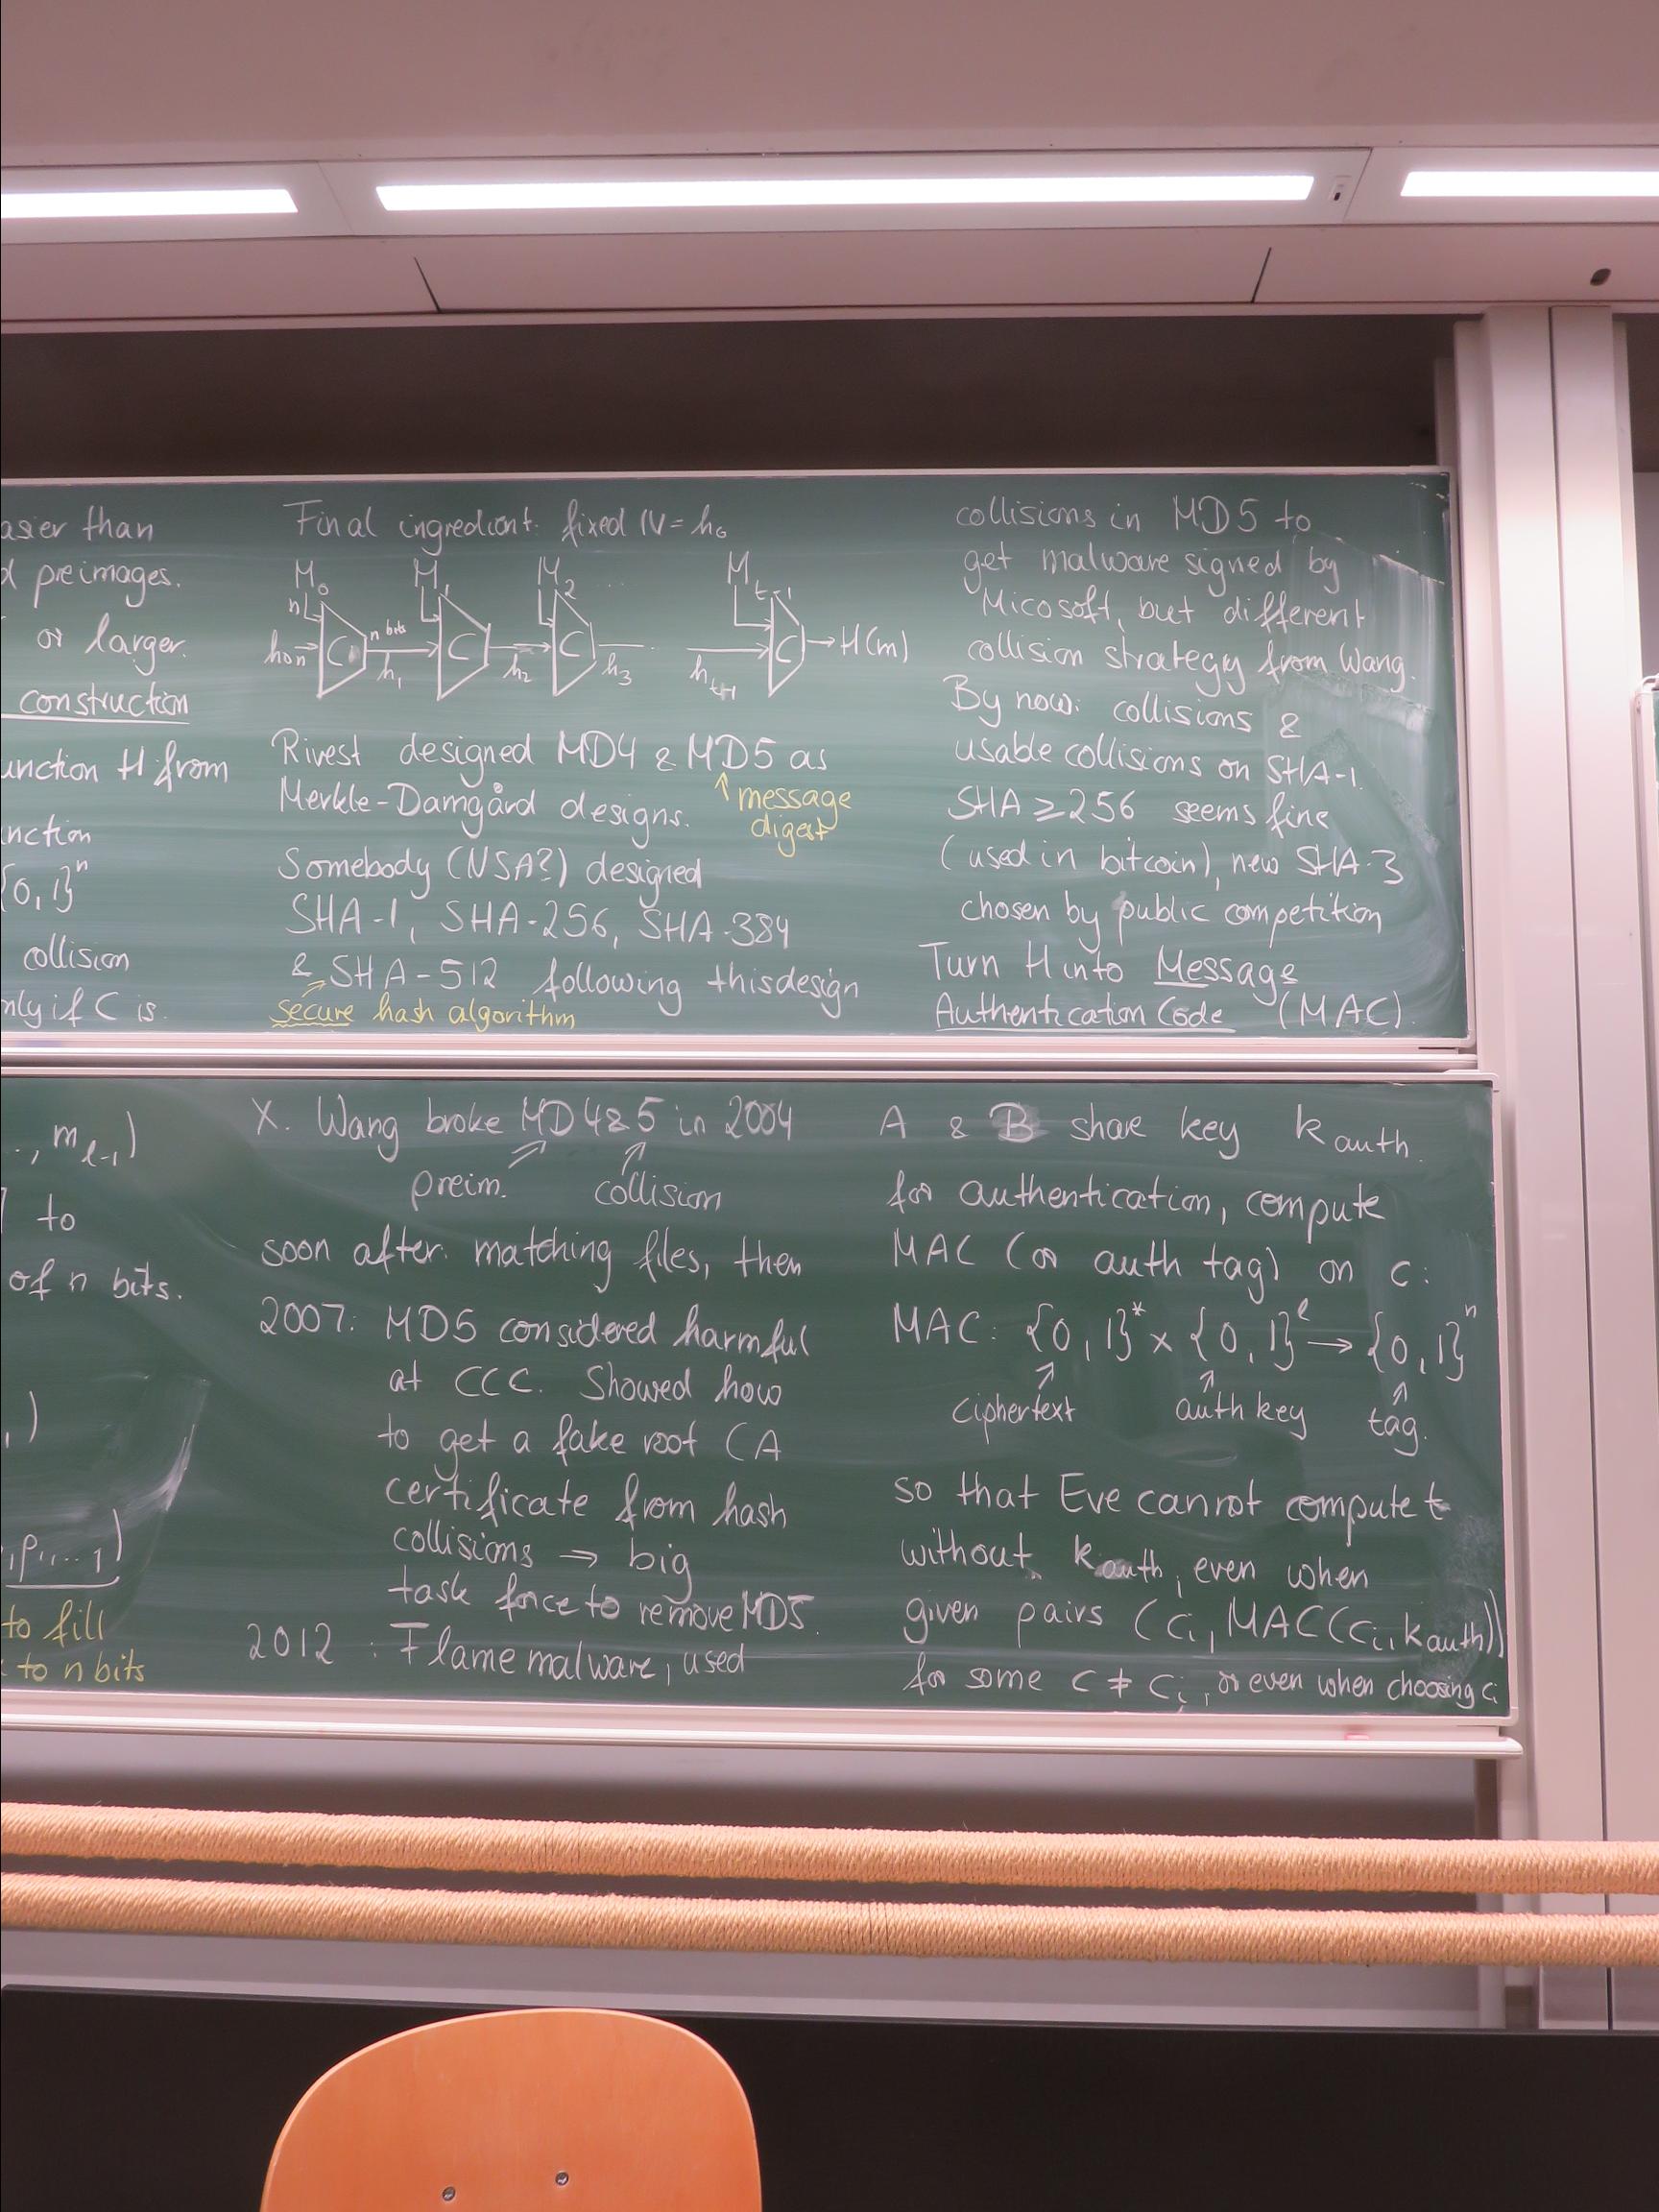 asier than
d preimages.
or larger.
construction
unction H from
nction
{0,1}ⁿ
collision
nly if C is.
Final ingredient: fixed IV = h₀
M₀ M₁ M₂ ... M_{t-1}
n
h₀ n C n bits C C C → H(m)
h₁ h₂ h₃ h_{t-1}
Rivest designed MD4 & MD5 as
Merkle-Damgård designs.
message
digest
Somebody (NSA?) designed
SHA-1, SHA-256, SHA-384
& SHA-512 following this design
secure hash algorithm
collisions in MD5 to
get malware signed by
Micosoft, but different
collision strategy from Wang.
By now: collisions &
usable collisions on SHA-1.
SHA ≥ 256 seems fine
(used in bitcoin), new SHA-3
chosen by public competition
Turn H into Message
Authentication Code (MAC).
., m_{ℓ-1})
to
of n bits.
, )
,p,...1)
to fill
to n bits
X. Wang broke MD4&5 in 2004
preim. collision
soon after: matching files, then
2007: MD5 considered harmful
at CCC. Showed how
to get a fake root CA
certificate from hash
collisions → big
task force to remove MD5.
2012 : Flame malware, used
A & B share key k_auth.
for authentication, compute
MAC (or auth tag) on c:
MAC: {0,1}* × {0,1}^ℓ → {0,1}ⁿ
ciphertext auth key tag.
so that Eve cannot compute t
without k_auth, even when
given pairs (cᵢ, MAC(cᵢ, k_auth))
for some c ≠ cᵢ, or even when choosing cᵢ